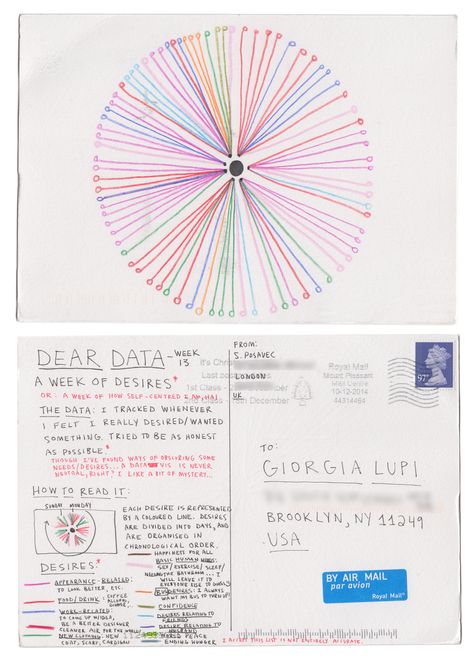 DEAR DATA - WEEK 13
A WEEK OF DESIRES*
OR: A WEEK OF HOW SELF-CENTRED I AM, HA!
THE DATA: I TRACKED WHENEVER
I FELT I REALLY DESIRED/WANTED
SOMETHING. TRIED TO BE AS HONEST
AS POSSIBLE.*
THOUGH I'VE FOUND WAYS OF OBSCURING SOME
NEEDS/DESIRES... A DATA VIS IS NEVER
NEUTRAL, RIGHT? I LIKE A BIT OF MYSTERY...
HOW TO READ IT:
SUNDAY MONDAY
EACH DESIRE IS REPRESENTED
BY A COLOURED LINE. DESIRES
ARE DIVIDED INTO DAYS, AND
ARE ORGANISED IN
CHRONOLOGICAL ORDER.
DESIRES:*
APPEARANCE-RELATED:
TO LOOK BETTER, ETC.
FOOD/DRINK: COFFEE
WORK-RELATED:
BE A BETTER DESIGNER
NEW CLOTHING: NEW
COAT, SCARF, CARDIGAN
HAPPINESS FOR ALL
BASIC HUMAN NEEDS:
SEX/EXERCISE/SLEEP/
NEEDING THE BATHROOM... I
WILL LEAVE IT TO
I ALWAYS
CONFIDENCE
WORLD PEACE
ENDING HUNGER
I ACCEPT THIS LIST IS NOT ENTIRELY ACCURATE.
FROM:
S. POSAVEC
LONDON
UK
It's Chris
Last
1st Class -
December
2nd Class -
18th December
Royal Mail
Mount Pleasant
Mail Centre
10-12-2014
44314464
TO:
GIORGIA LUPI
BROOKLYN, NY 11249
USA
BY AIR MAIL
par avion
Royal Mail